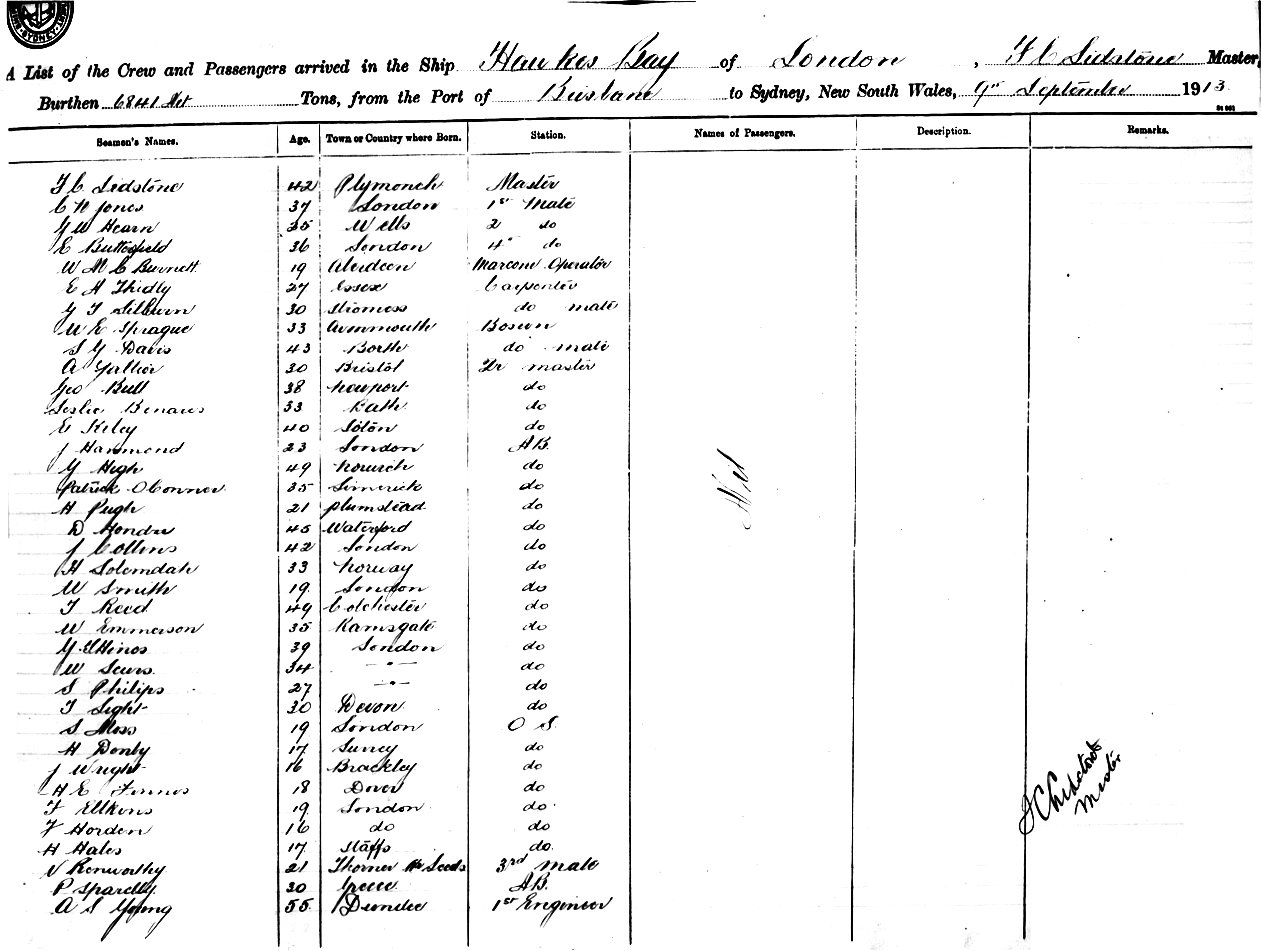 SYDNEY
A List of the Crew and Passengers arrived in the Ship Hawkes Bay of London, F C Lidstone Master,
Burthen 6841 Net Tons, from the Port of Brisbane to Sydney, New South Wales, 9th September 1913
Seamen's Names. Age. Town or Country where Born. Station. Names of Passengers. Description. Remarks.
F C Lidstone 42 Plymouth Master
C N Jones 37 London 1st Mate
G W Hearn 25 Wells 2 do
E Butterfield 36 London 4th do
W M C Burnett 19 Aberdeen Marconi Operator
E A 27 Essex Carpenter
G T Silburn 30 Stromess do mate
W E Sprague 33 Avonmouth Bosun
S G Davis 43 Borth do mate
A 30 Bristol Qr master
Geo Bull 38 Newport do
Leslie 33 Bath do
E Kiley 40 Soton do
J Hammond 23 London AB.
G High 49 Norwich do
Patrick OConner 35 Limerick do
H Pugh 21 Plumstead do
D 45 Waterford do
J Collins 42 London do
H Solemdah 33 Norway do
W Smith 19 London do
T Reed 49 Colchester do
W Emmerson 35 Ramsgate do
G 39 London do
W Sears 34 - " - do
S Philips 27 - " - do
T Light 30 Devon do
S Moss 19 London O S.
H Donby 17 Surrey do
J Wright 16 Brackley do
H E 18 Dover do
F Elkins 19 London do
F Horden 16 do do
H Hales 17 Staffs do.
N Kenworthy 21 Thorner Nr Leeds 3rd Mate
P 30 Greece AB.
A S Young 55 Dundee 1st Engineer
Nil
Master